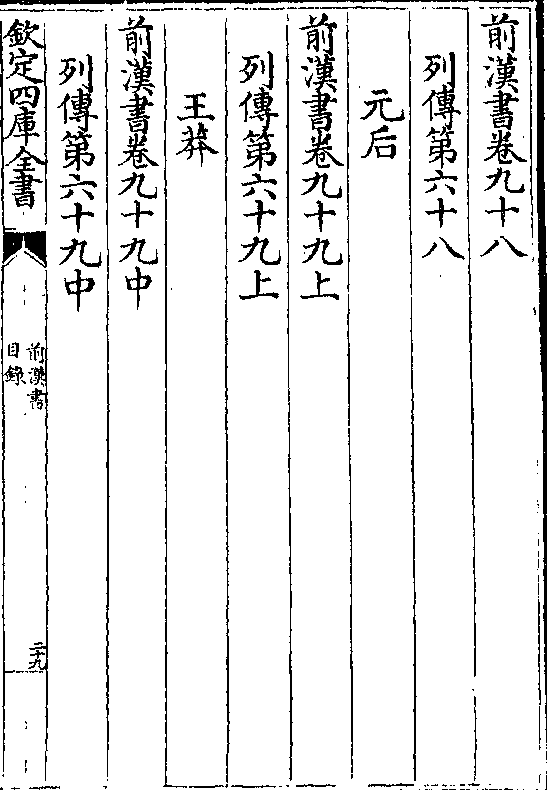 前漢書卷九十八
列傳第六十八
元后
前漢書卷九十九上
列傳第六十九上
王莽
前漢書卷九十九中
列傳第六十九中
欽定四庫全書
前漢書
目錄
二十九